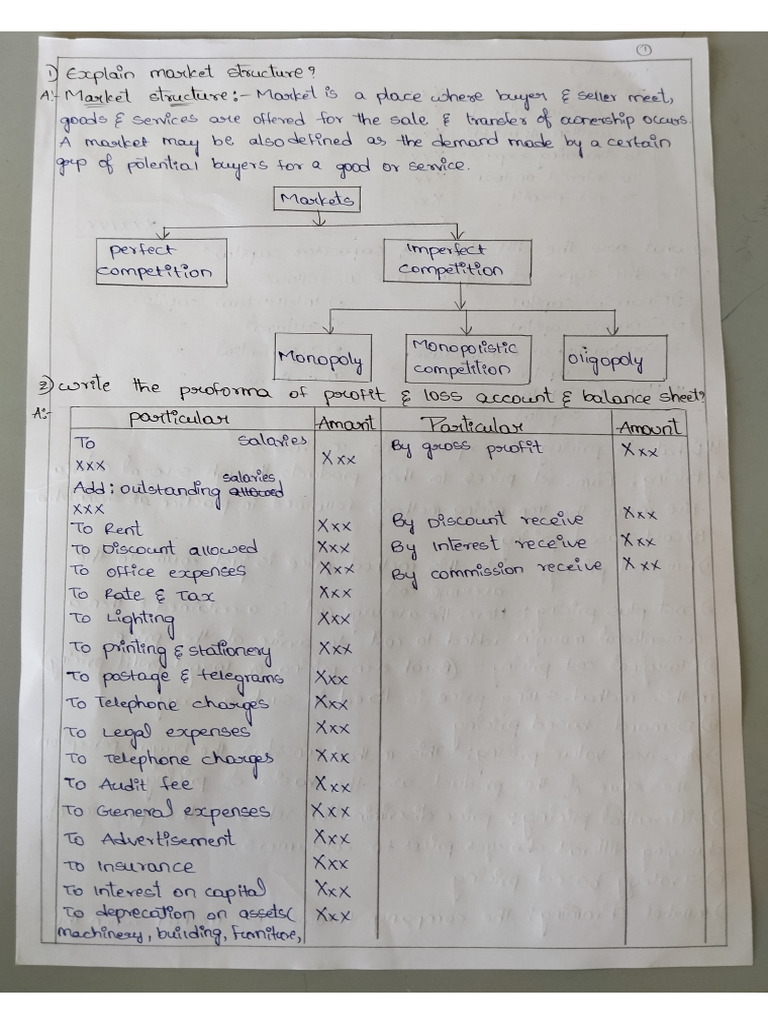 1
1) Explain market structure?
A:- Market structure:- Market is a place where buyer & seller meet,
goods & services are offered for the sale & transfer of ownership occurs.
A market may be also defined as the demand made by a certain
grp of potential buyers for a good or service.
Markets
perfect competition
Imperfect competition
Monopoly
Monopolistic competition
Oligopoly
2) write the proforma of profit & loss account & balance sheet?
A:-
particular Amount Particular Amount
To salaries Xxx By gross profit Xxx
xxx
salaries
Add: outstanding allowed
xxx
To Rent Xxx By Discount receive Xxx
To Discount allowed Xxx By Interest receive Xxx
To office expenses Xxx By commission receive Xxx
To Rate & Tax Xxx
To Lighting Xxx
To printing & stationery Xxx
To postage & telegrams Xxx
To Telephone charges Xxx
To Legal expenses Xxx
To Telephone charges Xxx
To Audit fee Xxx
To General expenses Xxx
To Advertisement Xxx
To insurance Xxx
To Interest on capital Xxx
To deprecation on assets( Xxx
machinery, building, furniture,